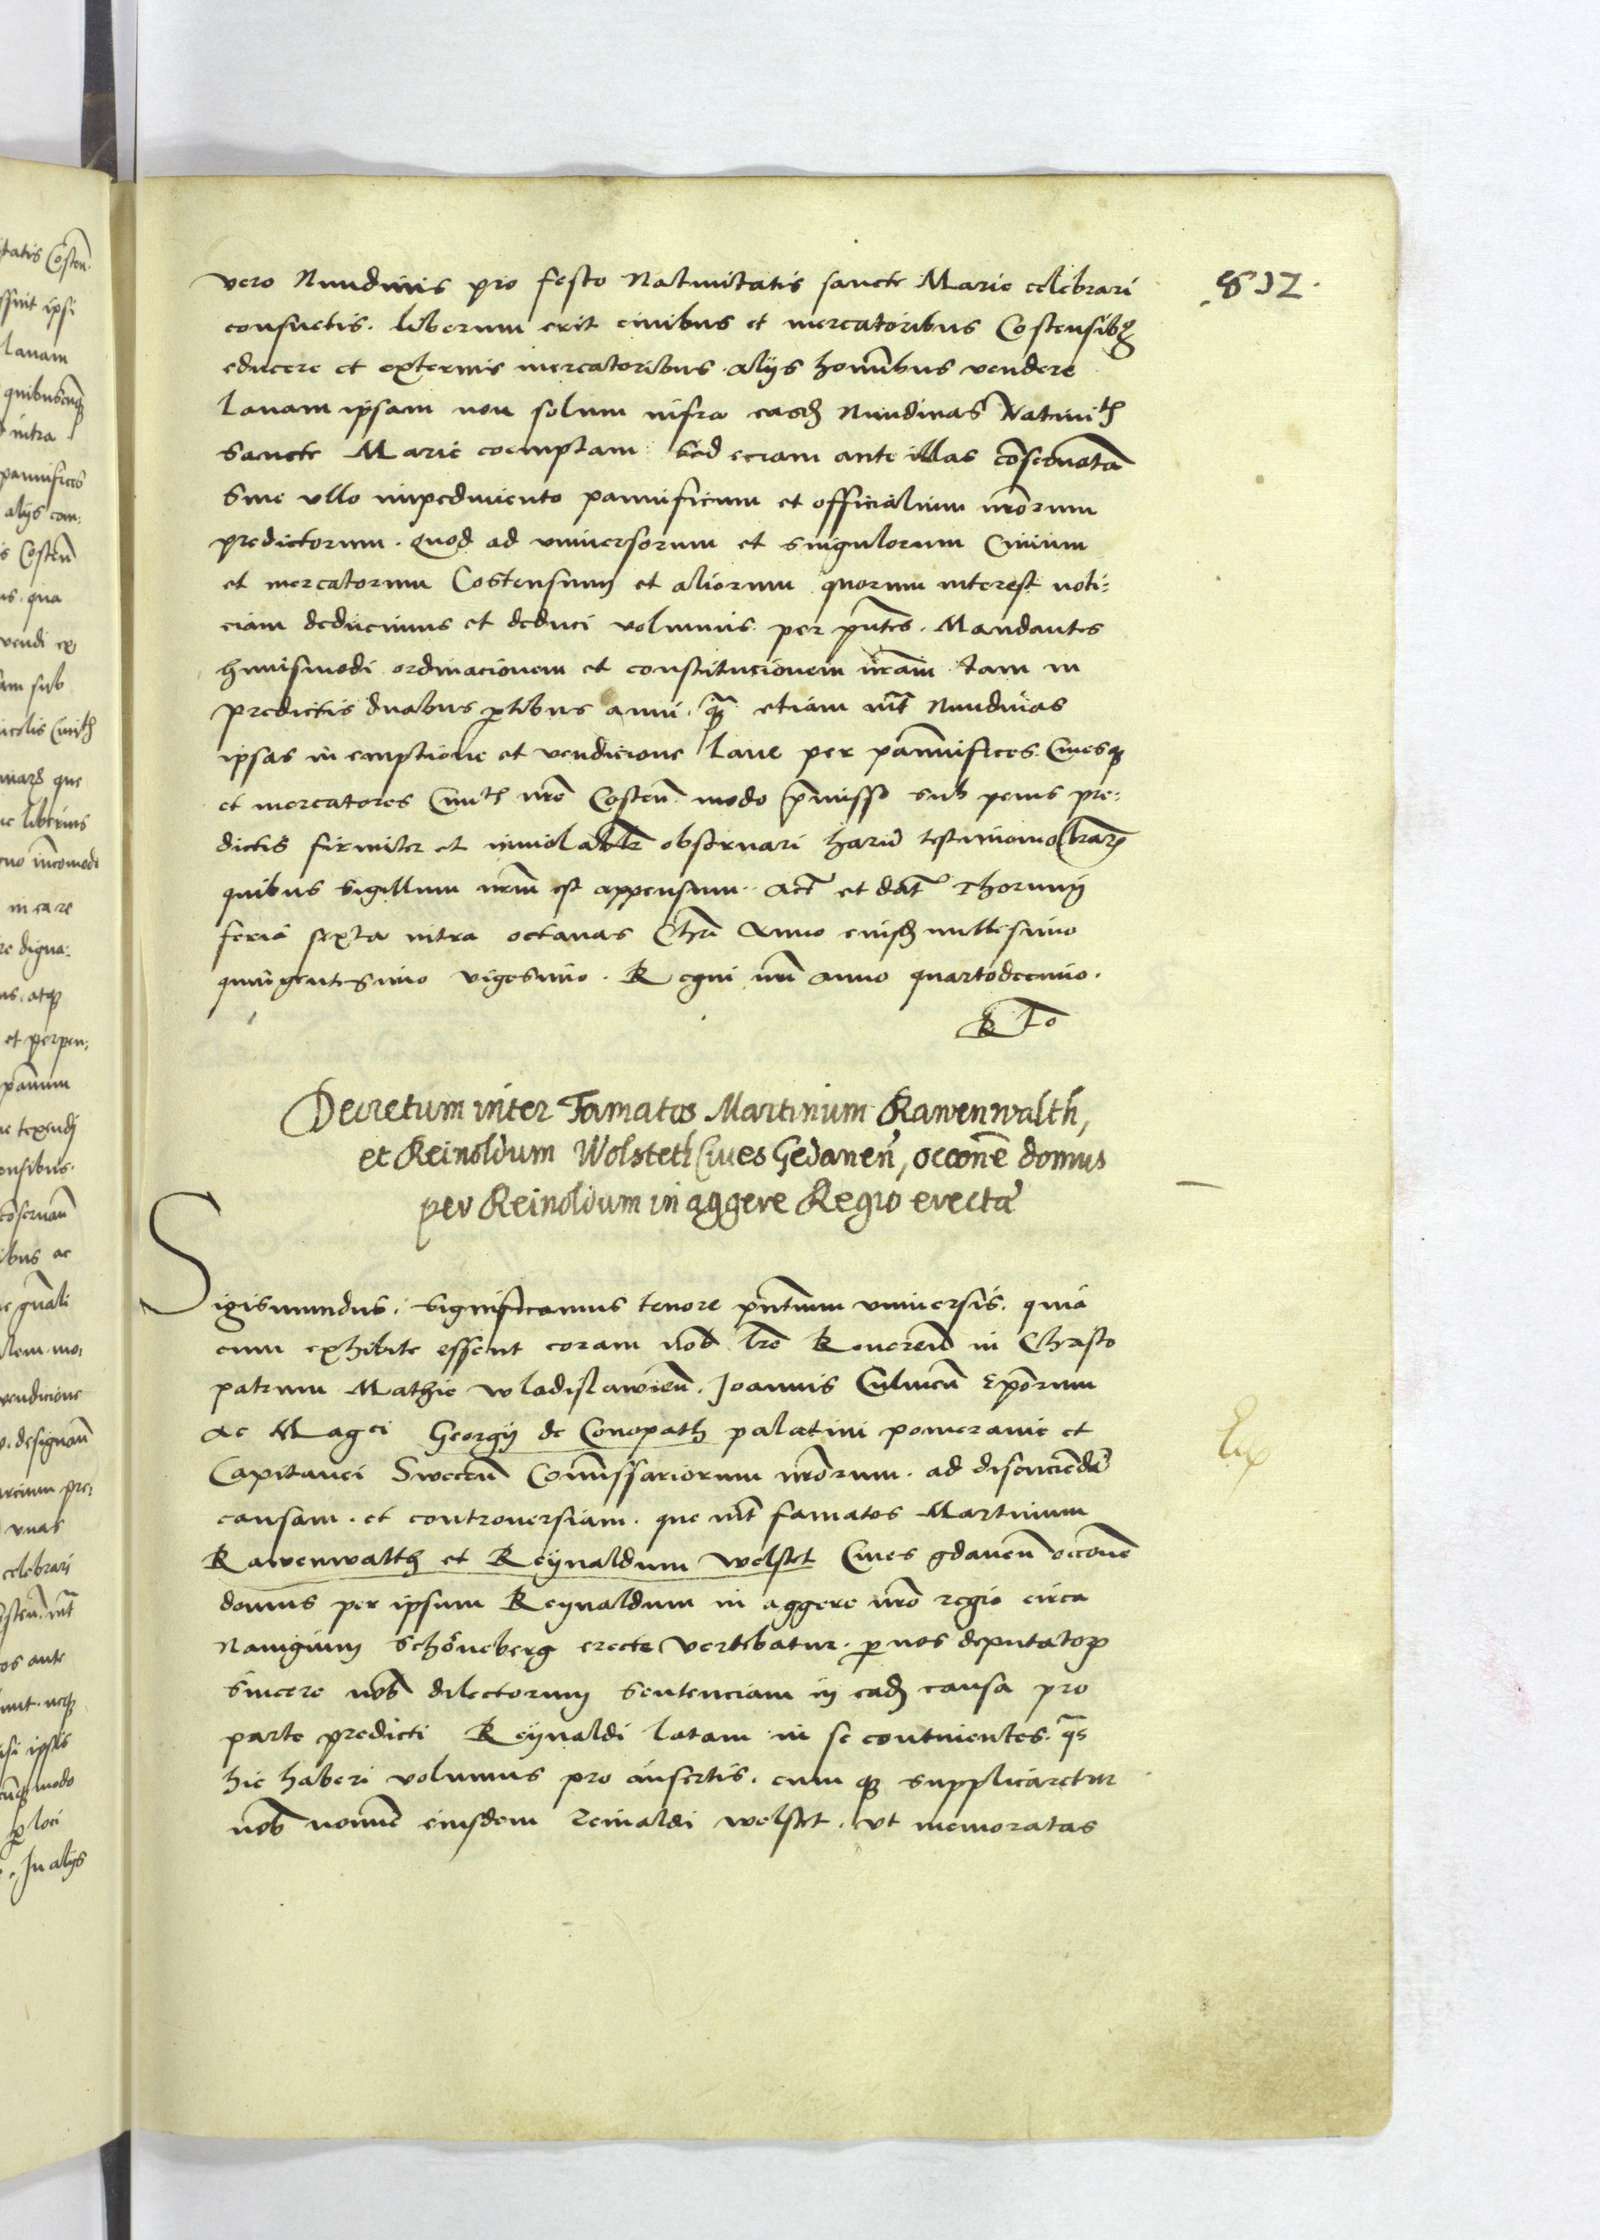 vero Nundinis pro festo Nativitatis sancte Marie celebrari
consuetis. liberum erit civibus et mercatoribus Costensibq
educere et externis mercatoribus alijs hominibus vendere
lanam ipsam non solum infra easd Nundinas Nativith
sancte Marie coemptam sed eciam ante illas coservata
sine vllo impedimento pannificum et officialium nrorum
predictorum. quod ad vniversorum et singulorum Civium
et mercatorum Costensium et aliorum quorum interest noti:
ciam deducimus et deduci volumus per pntes. Mandantes
huiusmodi ordinacionem et constitucionem nram tam in
predictis duabus ptibus anni. q etiam int Nundinas
ipsas in emptione et vendicione lane per pannifices Civesq
et mercatores Civith nre Costen modo pmisso sub penis pre:
dictis firmiter et inviolablr observari harum testimonio lrarum
quibus sigillum nrm est appensum. Act et dat Thorunij
feria sexta intra octavas Anno eiusd millesimo
quingentesimo vigesimo. Regni nri anno quartodecimo.
Decretum inter Famatos Martinum Rawenwalth,
et Reinoldum Wolsteth Cives Gedanen, occone domus
per Reinoldum in aggere Regio erecta
Sigismundus. significamus tenore pntium vniversis. quia
cum exhibite essent coram nob lre Reverend in Christo
patrum Mathie wladislawien. Joannis Culmen Eporum
ac Magci Georgij de Conopath palatini pomeranie et
Capitanei Swecen Commissariorum nrorum. ad discuciendam
causam. et controversiam. que int famatos Martinum
Rawenwalth et Reijnaldum welstet Cives gdanen occone
domus per ipsum Reijnaldum in aggere nro regio circa
Navigium Schöneberg erecte vertebatur. p nos deputatorum
sincere nob dilectorum sentenciam in ead causa pro
parte predicti Reijnaldi latam in se continentes. qs
hic haberi volumus pro insertis. cum q supplicaretur
nob nomine eiusdem Reinaldi welstet. vt memoratas